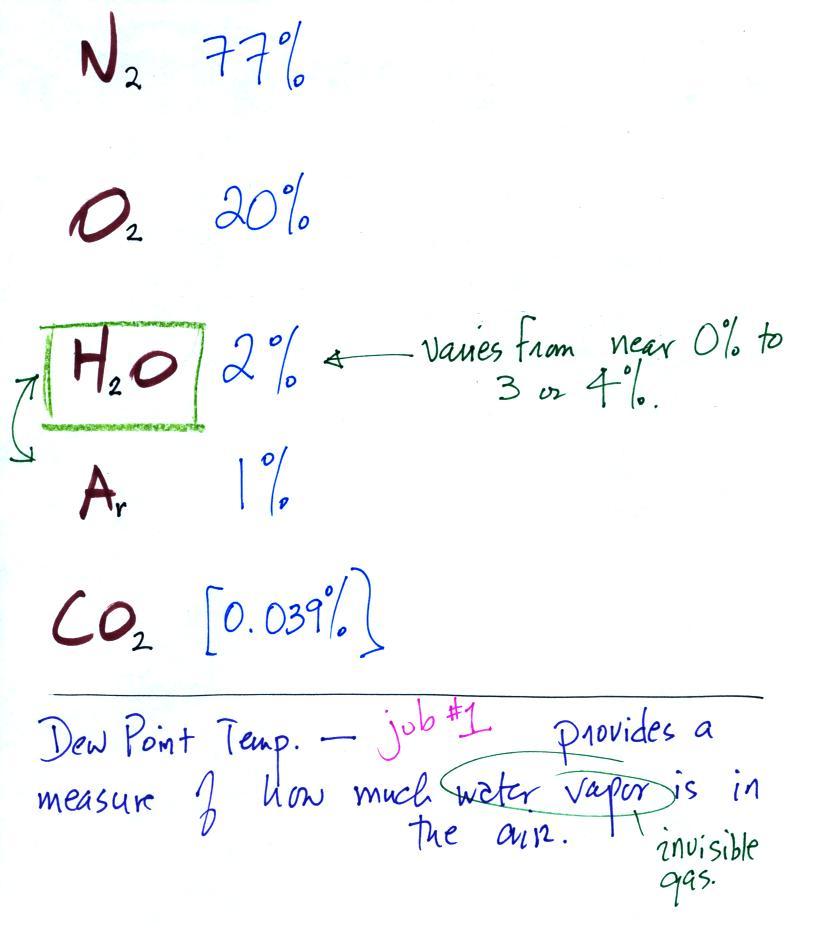 N₂ 77%
O₂ 20%
H₂O 2% ← varies from near 0% to
3 or 4%.
Ar 1%
CO₂ [0.039%]
Dew Point Temp. — job #1 provides a
measure of how much water vapor is in
the air.
invisible
gas.